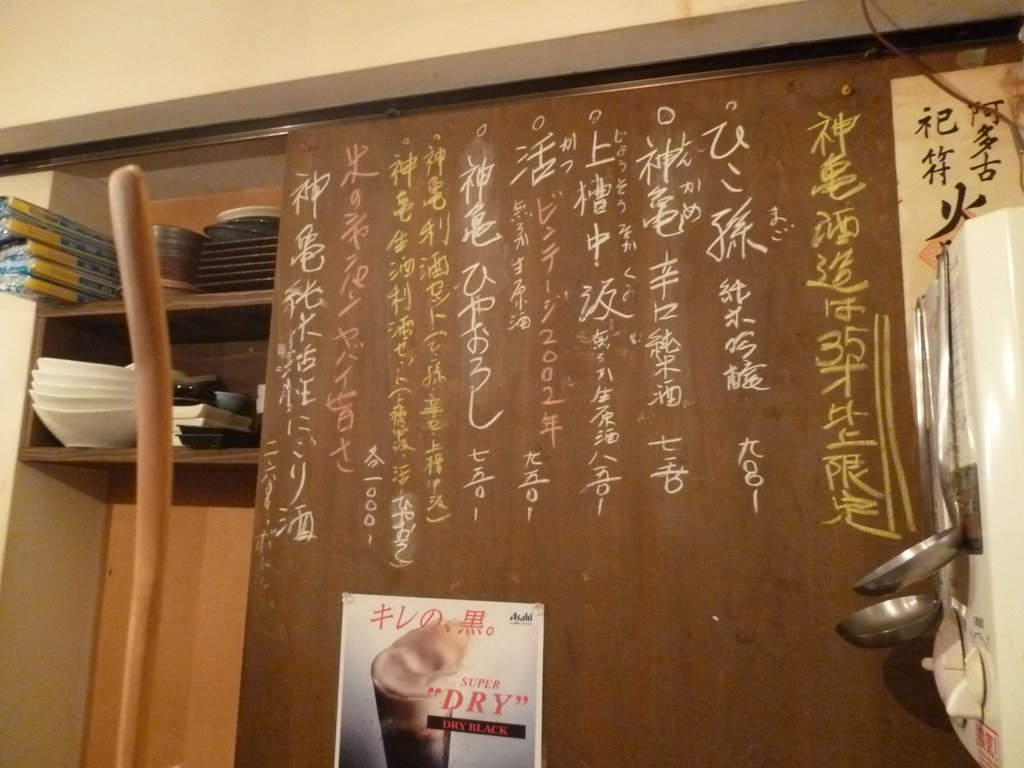 阿多古
祀符
火
神亀酒造は35才以上限定
ひこ孫 純米吟醸 九〇〇ー
まご
神亀 辛口純米酒 七五〇
しんかめ
上槽中汲 無ろか生原酒 八五〇ー
じょうそうなかくみ
活 ビンテージ2002年 九五〇ー
かつ
無ろか生原酒
神亀ひやおろし 七五〇ー
神亀利酒セット(ひこ孫 辛口 上槽中汲)
神亀生酒利酒セット
各一〇〇〇ー
米のシャンパン ヤバイ旨さ
神亀純米活性にごり酒
キレの、黒。
Asahi
SUPER
"DRY"
DRY BLACK